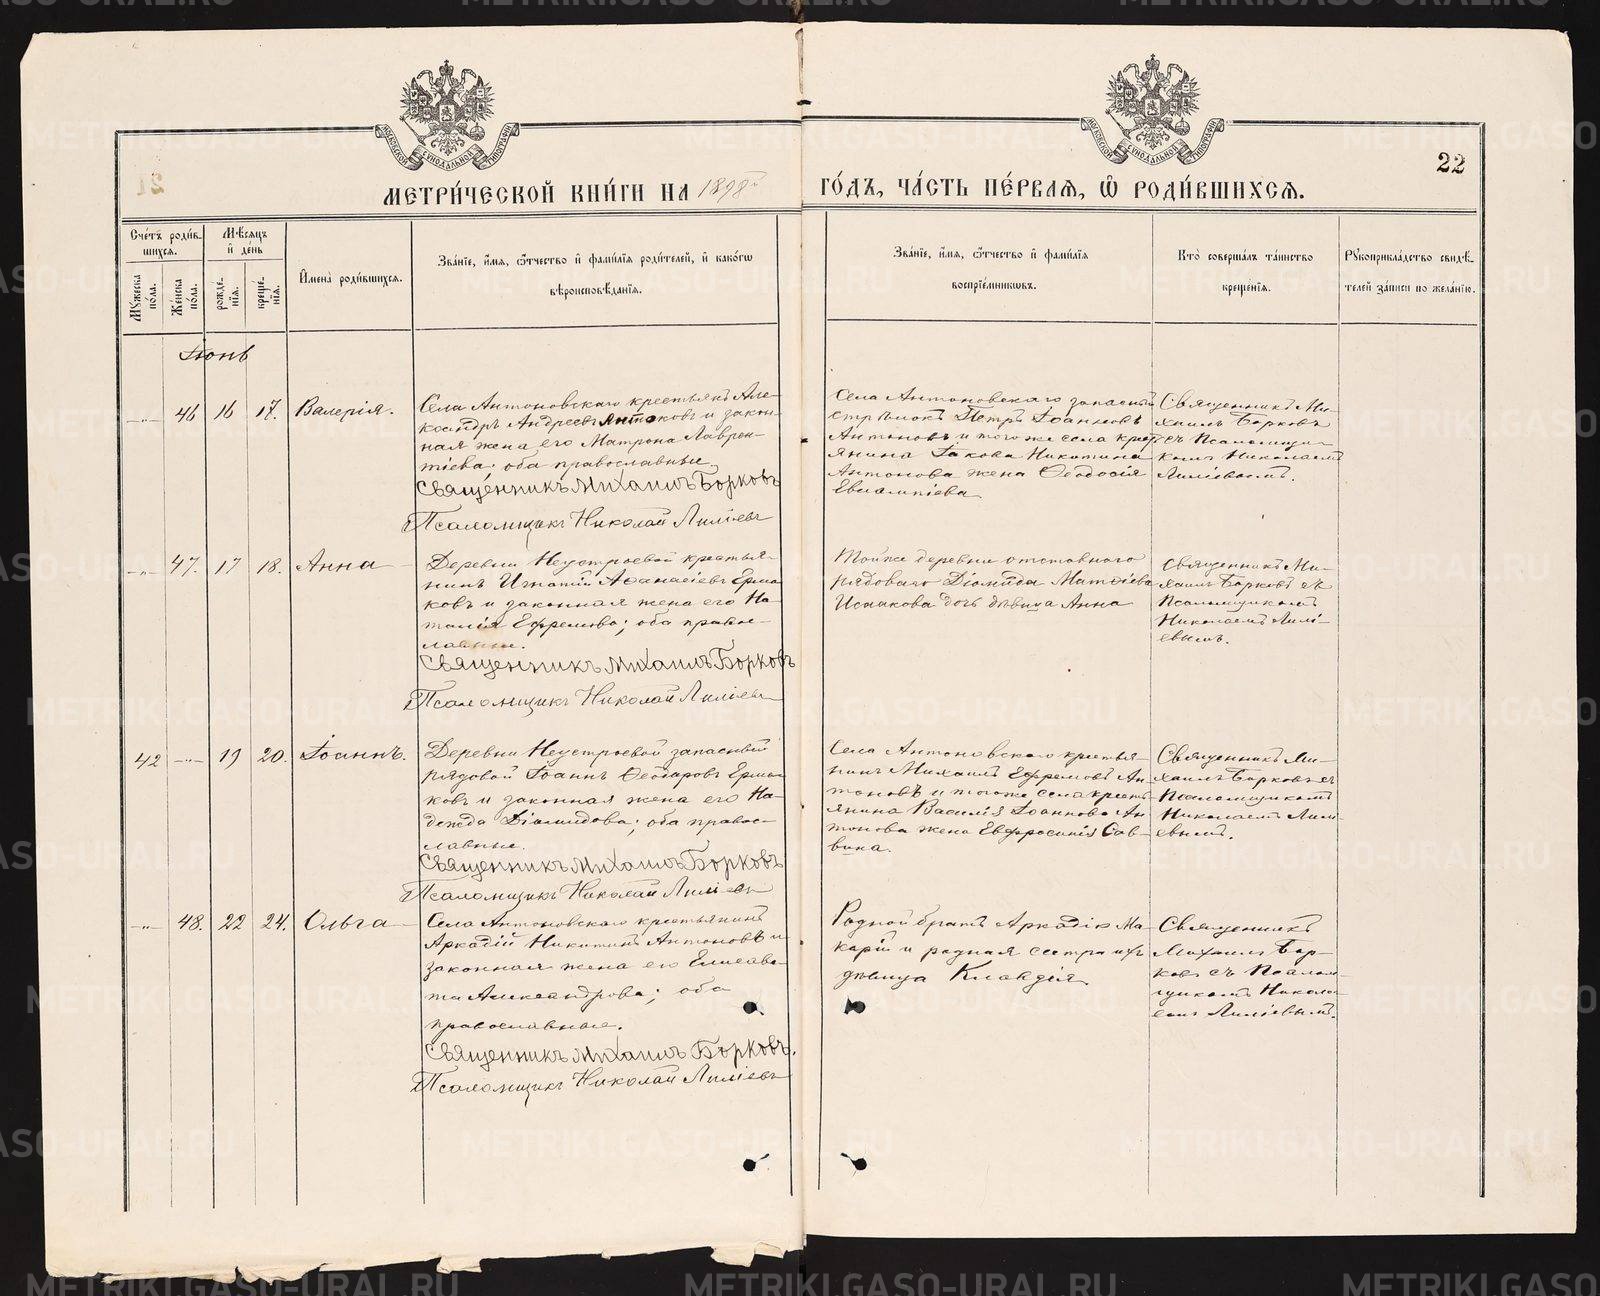 МЕТРИ́ЧЕСКОЙ КНИ́ГИ НА 1898й
ГО́ДЪ, ЧА́СТЬ ПЕ́РВАЯ, Ѡ҆ РОДИ́ВШИХСЯ.
22
Сче́тъ роди́в-
шихся.
Мѣ́сяцъ
и҆ де́нь
Мꙋ́жеска по́ла.
Же́нска по́ла.
рожде-
нїя.
креще-
нїя.
И҆мена̀ роди́вшихся.
Зва́нїе, и҆́мя, ѻ҆́тчество и҆ фами́лїя роди́телей, и҆ како́гѡ
вѣроисповѣ́данїя.
Зва́нїе, и҆́мя, ѻ҆́тчество и҆ фами́лїя
воспрїе́мникѡвъ.
Кто̀ соверша́лъ та́инство
креще́нїя.
Рꙋкоприкла́дство свидѣ́-
телей за́писи по жела́нїю.
Іюнь
-„- 46 16 17. Валерія.
Села Антоновскаго крестьянъ Але-
ксандръ Андреевъ Антоковъ и закон-
ная жена его Матрона Лаврен-
тіева; оба православные.
Священникъ Михаилъ Борковъ
Псаломщикъ Николай Лиліевъ
Села Антоновскаго запасный
стрѣлокъ Петръ Іоанновъ
Антоновъ и тогоже села крест-
янина Іакова Никитина
Антонова жена Ѳеодосія
Евлампіева
Священникъ Ми-
хаилъ Борковъ
съ Псаломщи-
комъ Николаемъ
Лиліевымъ.
-„- 47. 17 18. Анна
Деревни Неустроевой крестья-
нинъ Игнатій Аѳанасіевъ Ерма-
ковъ и законная жена его На-
талія Ефремова; оба правос-
лавные.
Священникъ Михаилъ Борковъ
Псаломщикъ Николай Лиліевъ
Тойже деревни отставнаго
рядоваго Діомида Матѳіева
Исмакова дочь дѣвица Анна
Священникъ Ми-
хаилъ Борковъ съ
Псаломщикомъ
Николаемъ Лилі-
евымъ.
42 -„- 19 20. Іоаннъ.
Деревни Неустроевой запасный
рядовой Іоаннъ Ѳеодоровъ Ерма-
ковъ и законная жена его На-
дежда Діомидова; оба правос-
лавные.
Священникъ Михаилъ Борковъ
Псаломщикъ Николай Лиліевъ
Села Антоновскаго крестья-
нинъ Михаилъ Ефремовъ Ан-
тоновъ и тогоже села кресть-
янина Василія Іоаннова Ан-
тонова жена Евфросинія Сав-
вина.
Священникъ Ми-
хаилъ Борковъ съ
Псаломщикомъ
Николаемъ Лилі-
евымъ.
-„- 48. 22 24. Ольга
Села Антоновскаго крестьянинъ
Аркадій Никитинъ Антоновъ и
законная жена его Елисаве-
та Александрова; оба
православные.
Священникъ Михаилъ Борковъ.
Псаломщикъ Николай Лиліевъ
Родной братъ Аркадію Ма-
карій и родная сестра ихъ
дѣвица Клавдія
Священникъ
Михаилъ Бор-
ковъ съ Псалом-
щикомъ Никола-
емъ Лиліевымъ.
METRIKI.GASO-URAL.RU